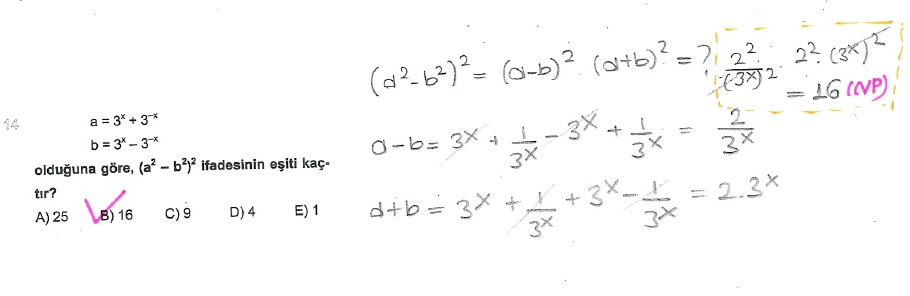 14
a = 3ˣ + 3⁻ˣ
b = 3ˣ – 3⁻ˣ
olduğuna göre, (a² – b²)² ifadesinin eşiti kaç-
tır?
A) 25 B) 16 C) 9 D) 4 E) 1
(a²-b²)² = (a-b)² . (a+b)² = ?
2²/(3ˣ)² . 2² . (3ˣ)²
= 16 (CVP)
a-b = 3ˣ + 1/3ˣ - 3ˣ + 1/3ˣ = 2/3ˣ
a+b = 3ˣ + 1/3ˣ + 3ˣ - 1/3ˣ = 2.3ˣ